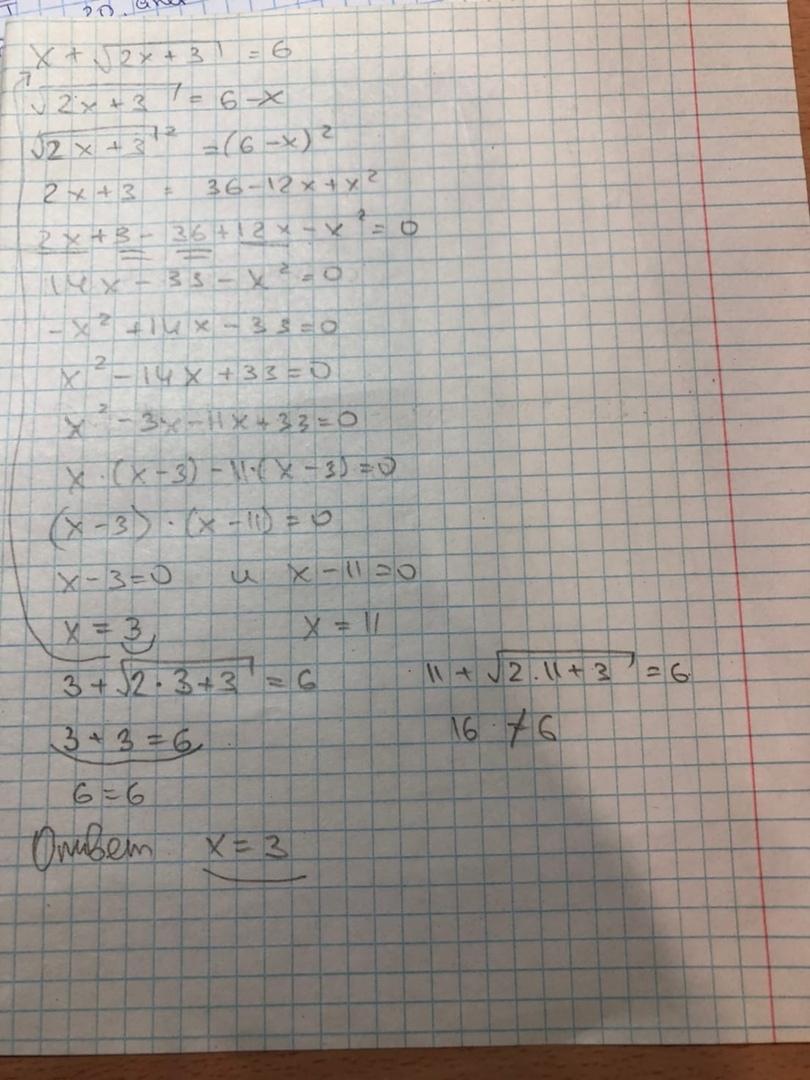 x + √(2x+3) = 6
√(2x+3) = 6-x
√(2x+3)² = (6-x)²
2x+3 = 36-12x+x²
2x+3-36+12x-x²=0
14x-33-x²=0
-x²+14x-33=0
x²-14x+33=0
x²-3x-11x+33=0
x·(x-3)-11·(x-3)=0
(x-3)·(x-11)=0
x-3=0 и x-11=0
x=3 x=11
3+√(2·3+3)=6 11+√(2.11+3)=6
3+3=6 16≠6
6=6
Ответ x=3